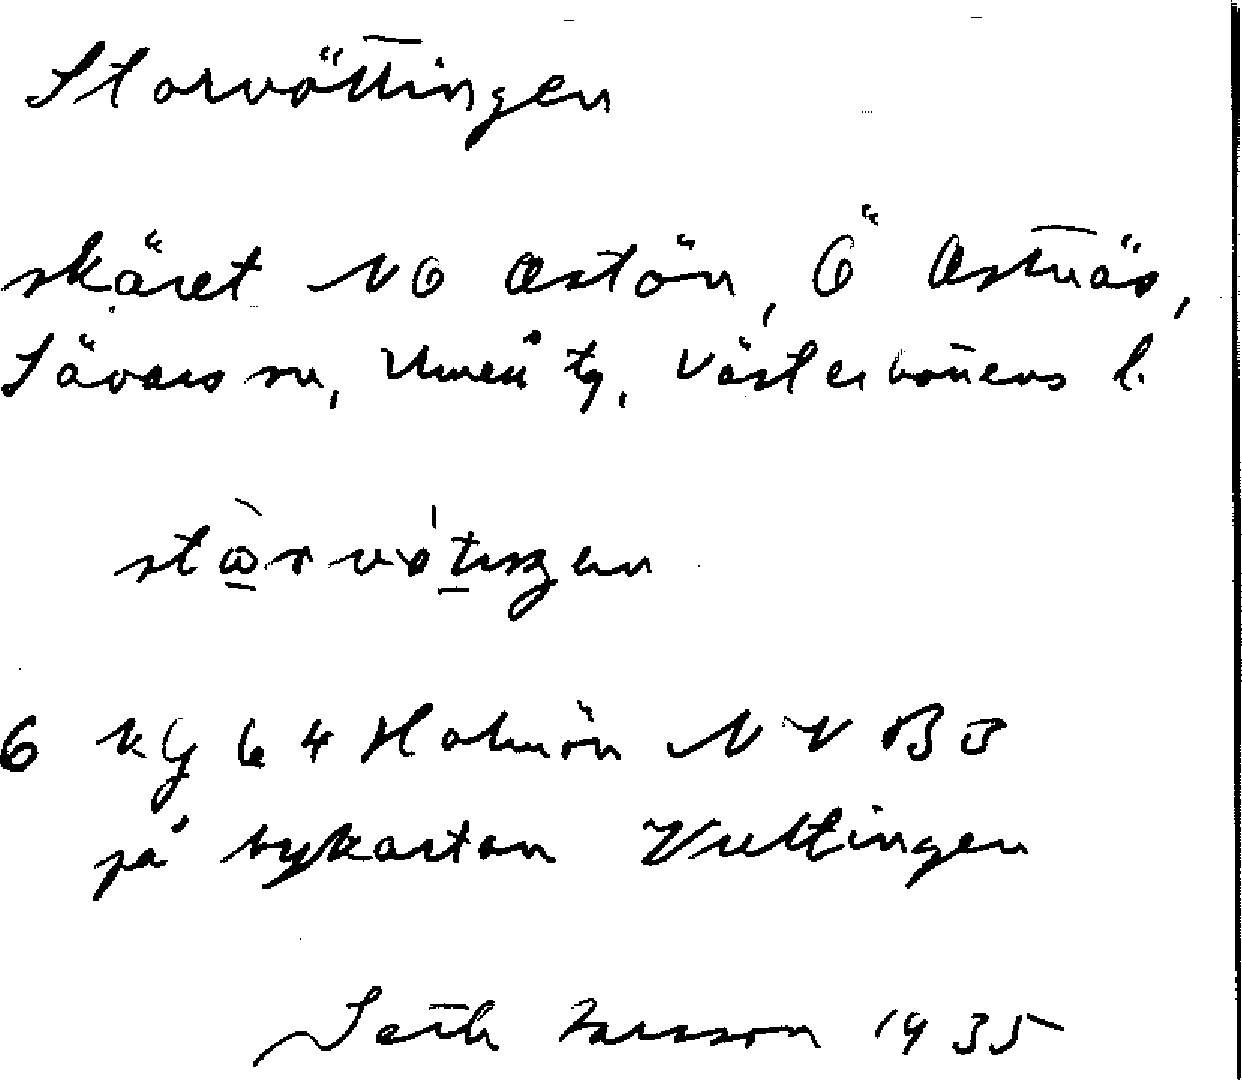 Storvöttingen
skäret NO Ostön, Ö Ostnäs,
Sävars sn, Umeå tg, Västerbottens l.
6 kg 64 Holmön NV B3
på bykartan Vuttingen
Seth Larsson 1935